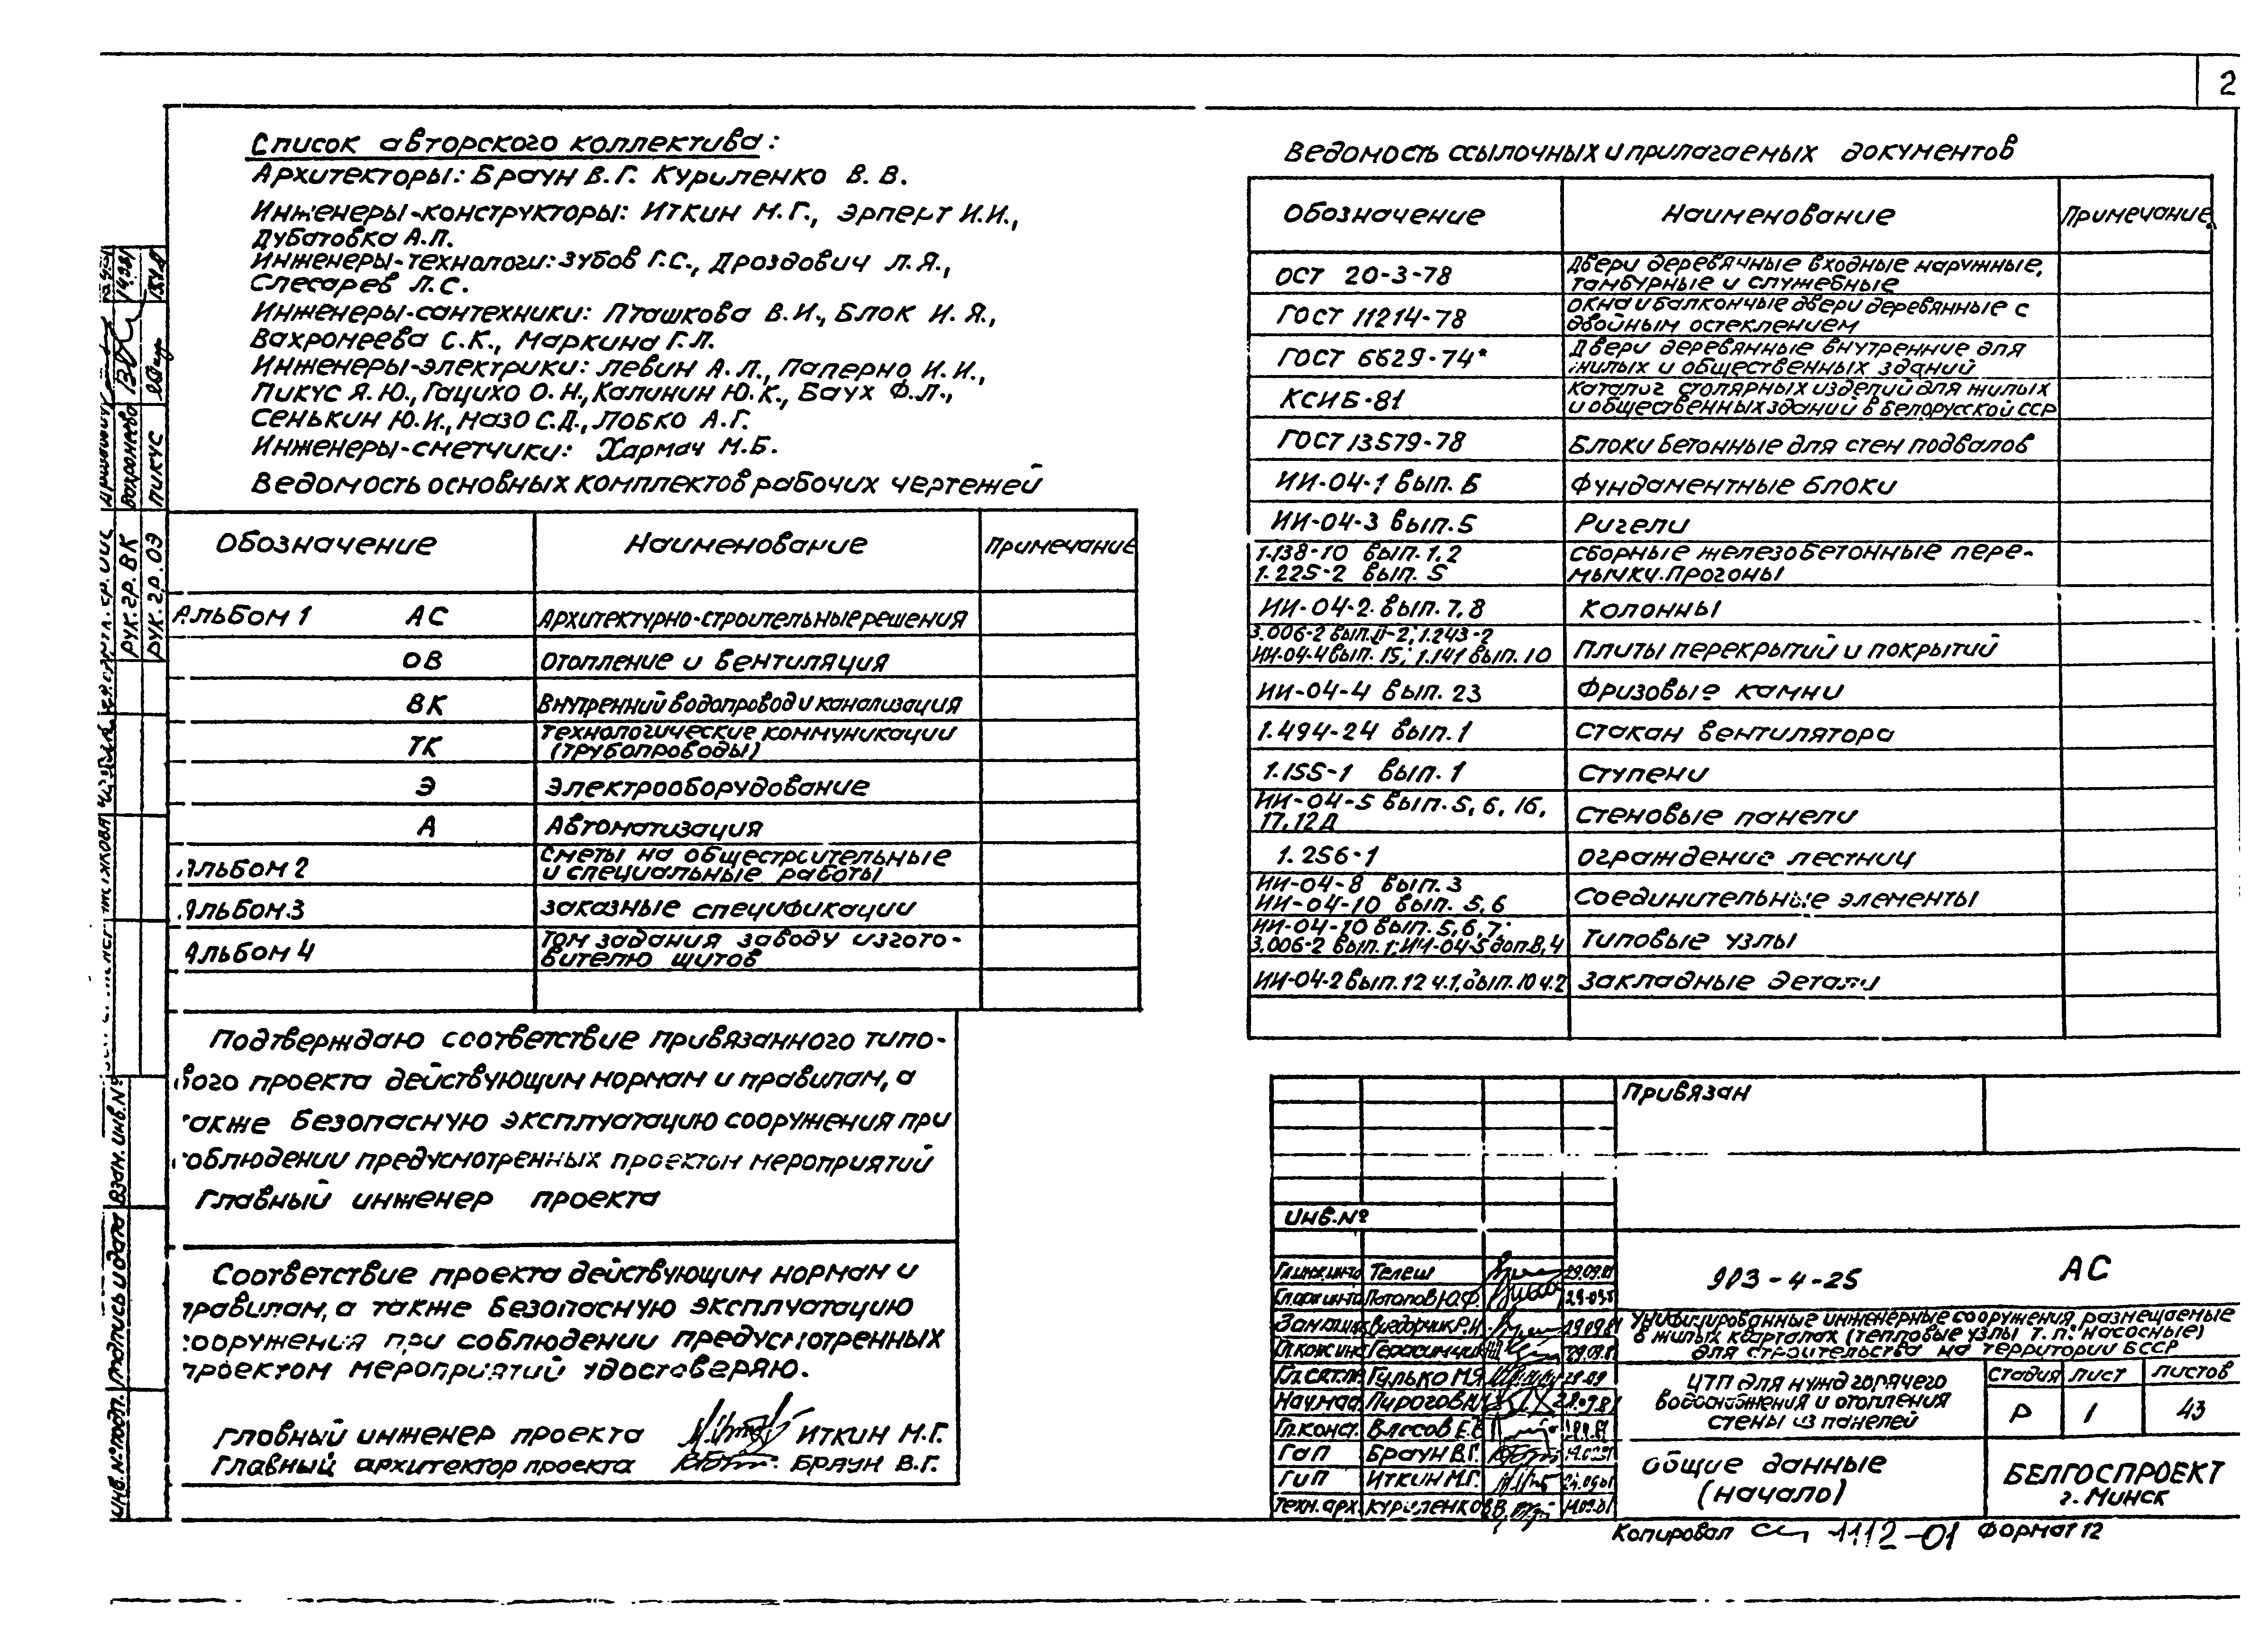 2
Список авторского коллектива:
Архитекторы: Браун В.Г. Куриленко В.В.
Инженеры-конструкторы: Иткин М.Г., Эрперт И.И.,
Дубатовка А.П.
Инженеры-технологи: Зубов Г.С., Дроздович Л.Я.,
Слесарев Л.С.
Инженеры-сантехники: Пташкова В.И., Блок И.Я.,
Вахронеева С.К., Маркина Г.Л.
Инженеры-электрики: Левин А.Л., Паперно И.И.,
Пикус Я.Ю., Гацихо О.Н., Калинин Ю.К., Баух Ф.Л.,
Сенькин Ю.И., Назо С.Д., Лобко А.Г.
Инженеры-сметчики: Хармач М.Б.
Ведомость основных комплектов рабочих чертежей
Обозначение Наименование Примечание
Альбом 1 АС Архитектурно-строительные решения
ОВ Отопление и вентиляция
ВК Внутренний водопровод и канализация
ТК Технологические коммуникации
(трубопроводы)
Э Электрооборудование
А Автоматизация
Альбом 2 Сметы на общестроительные
и специальные работы
Альбом 3 Заказные спецификации
Альбом 4 Том задания заводу изгото-
вителю щитов
Подтверждаю соответствие привязанного типо-
вого проекта действующим нормам и правилам, а
также безопасную эксплуатацию сооружения при
соблюдении предусмотренных проектом мероприятий
Главный инженер проекта
Соответствие проекта действующим нормам и
правилам, а также безопасную эксплуатацию
сооружения при соблюдении предусмотренных
проектом мероприятий удостоверяю.
Главный инженер проекта Иткин М.Г.
Главный архитектор проекта Браун В.Г.
Ведомость ссылочных и прилагаемых документов
Обозначение Наименование Примечание
ОСТ 20-3-78 Двери деревянные входные наружные,
тамбурные и служебные
ГОСТ 11214-78 Окна и балконные двери деревянные с
двойным остеклением
ГОСТ 6629-74* Двери деревянные внутренние для
жилых и общественных зданий
КСИБ-81 Каталог столярных изделий для жилых
и общественных зданий в Белорусской ССР
ГОСТ 13579-78 Блоки бетонные для стен подвалов
ИИ-04-1 вып. Б Фундаментные блоки
ИИ-04-3 вып. 5 Ригели
1.138-10 вып. 1, 2 Сборные железобетонные пере-
1.225-2 вып. 5 мычки. Прогоны
ИИ-04-2. вып. 7, 8 Колонны
3.006-2 вып. II-2; 1.243-2
ИИ-04-4 вып. 15; 1.141 вып. 10 Плиты перекрытий и покрытий
ИИ-04-4 вып. 23 Фризовые камни
1.494-24 вып. 1 Стакан вентилятора
1.155-1 вып. 1 Ступени
ИИ-04-5 вып. 5, 6, 16,
17, 12Д Стеновые панели
1.256-1 Ограждение лестниц
ИИ-04-8 вып. 3
ИИ-04-10 вып. 5, 6 Соединительные элементы
ИИ-04-10 вып. 5, 6, 7;
3.006-2 вып. 1; ИИ-04-5 доп. 8, 4 Типовые узлы
ИИ-04-2 вып. 12 ч.1, вып. 10 ч.2 Закладные детали
Привязан
Инв. №
Гл.инж.инта Телеш 29.09.81
Гл.арх.инта Потапов Ю.Ф.
Выдорчик Р.И. 29.09.81
Герасимчик 29.09.81
Гулько М.Я. 29.09
Пирогов
Гл.конст. Власов Е.В.
ГАП Браун В.Г.
ГИП Иткин М.Г.
Техн.арх. Куриленко В.В. 14.09.81
903-4-25 АС
Унифицированные инженерные сооружения размещаемые
в жилых кварталах (тепловые узлы т.п. насосные)
для строительства на территории БССР
ЦТП для нужд горячего
водоснабжения и отопления
стены из панелей
Стадия Лист Листов
Р 1 43
Общие данные
(начало)
БЕЛГОСПРОЕКТ
г. Минск
Копировал 1112-01 Формат 12
Рук. гр. ВК Вахронеева
Рук. гр. ОЭ Пикус
Взам. инв. №
Подпись и дата
Инв. № подл.